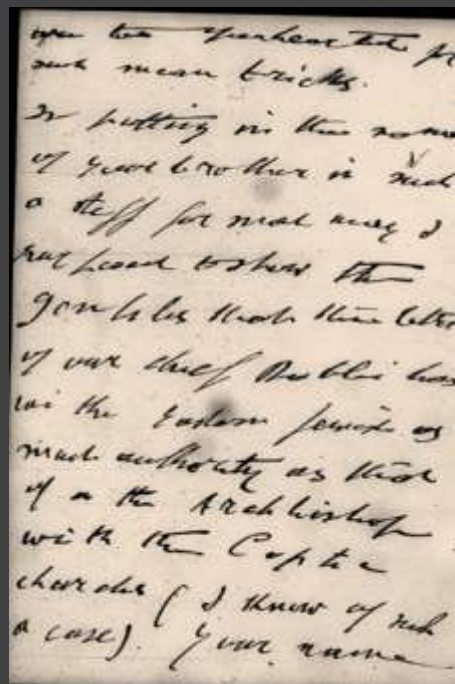 such mean tricks.
In putting in the name
of your brother in such
a stiff formal way I
purposed to show the
gentiles that the letter
of our chief Rabbi has
with the Eastern Jews as
much authority as that
of a the Archbishop
with the Coptic
churches (I know of such
a case). Your name